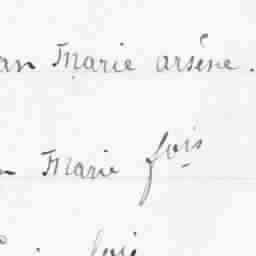 an Marie arsène.
n Marie fois